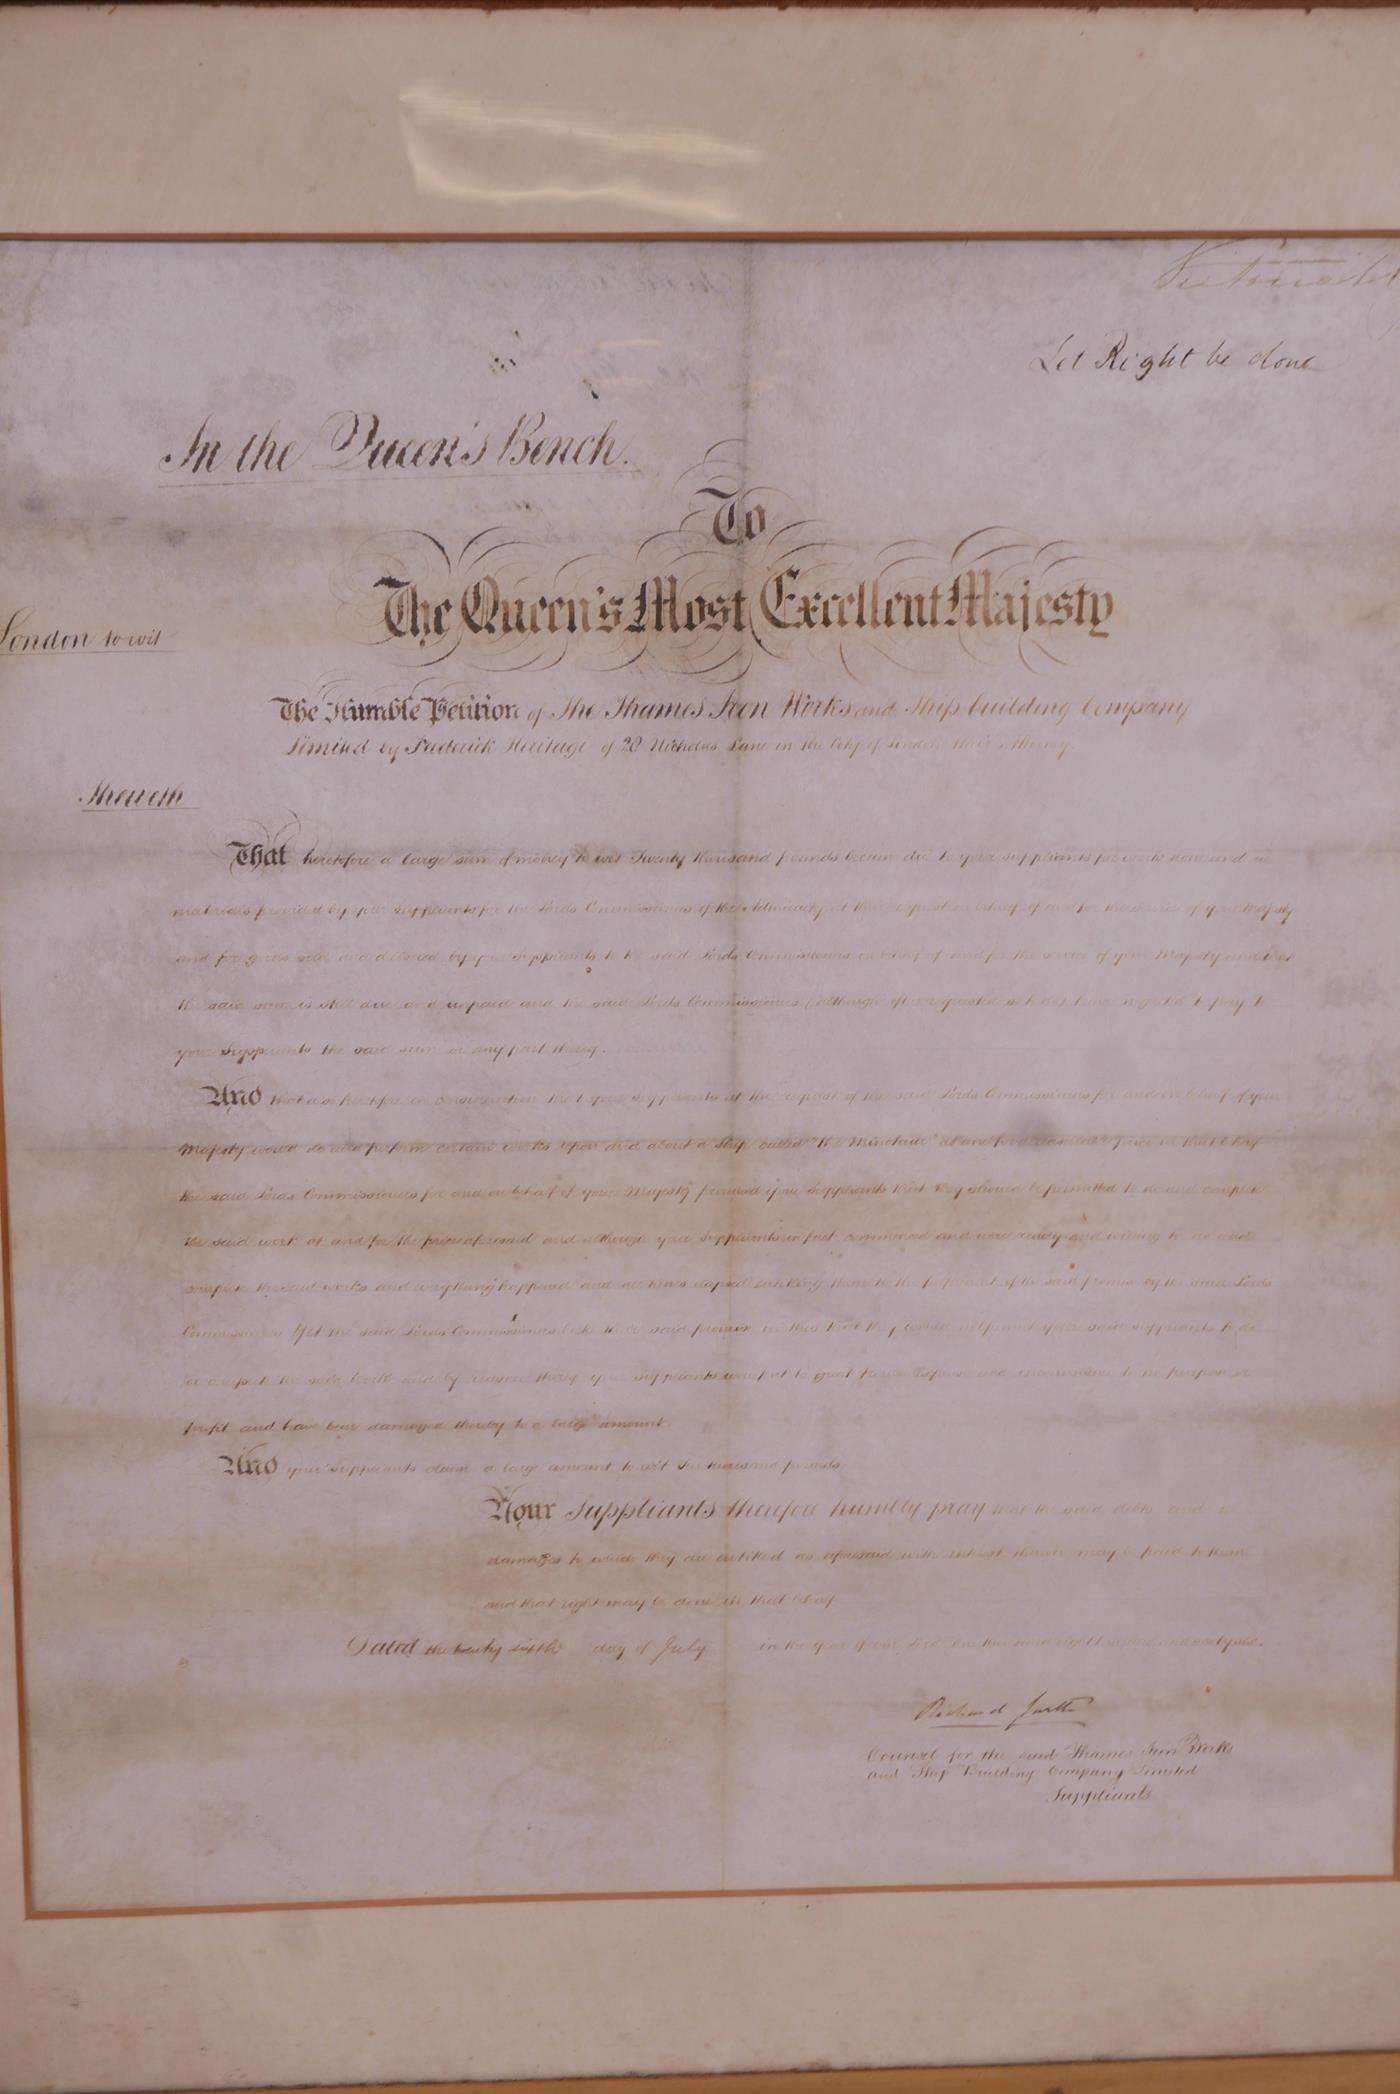 Let Right be done
In the Queen's Bench.
To
The Queen's Most Excellent Majesty
London to wit
The Humble Petition of The Thames Iron Works and Ship building Company
Limited by Frederick Heritage of 20 Nicholas Lane in the City of London their Attorney.
Sheweth
That heretofore a large sum of money to wit Twenty thousand pounds became due to your Suppliants for work done and
materials provided by your Suppliants for the Lords Commissioners of the Admiralty at their request on behalf of and for the service of your Majesty
and for goods sold and delivered by your Suppliants to the said Lords Commissioners on behalf of and for the service of your Majesty and that
the said sum is still due and unpaid and the said Lords Commissioners (although often requested so to do) have neglected to pay to
your Suppliants the said sum or any part thereof.
And that also heretofore in consideration that your Suppliants at the request of the said Lords Commissioners for and on behalf of your
Majesty would do and perform certain works upon and about a Ship called "the Minotaur" at and for a certain price in that behalf
the said Lords Commissioners for and on behalf of your Majesty promised your Suppliants that they should be permitted to do and complete
the said work at and for the price aforesaid and although your Suppliants in fact commenced and were ready and willing to do and
complete the said works and everything happened and all times elapsed entitling them to the fulfilment of the said promise by the said Lords
Commissioners Yet the said Lords Commissioners broke their said promise in this that they would not permit your said Suppliants to do
or complete the said work and by reason thereof your Suppliants were put to great expense and inconvenience to no purpose or
profit and have been damaged thereby to a large amount.
And your Suppliants claim a large amount to wit Ten thousand pounds
Your Suppliants therefore humbly pray that the said debts and
damages to which they are entitled as aforesaid with interest thereon may be paid to them
and that right may be done in that behalf
Dated the twenty sixth day of July in the year of our Lord one thousand eight hundred and
Richard Garth
Counsel for the said Thames Iron Works
and Ship Building Company Limited
Suppliants